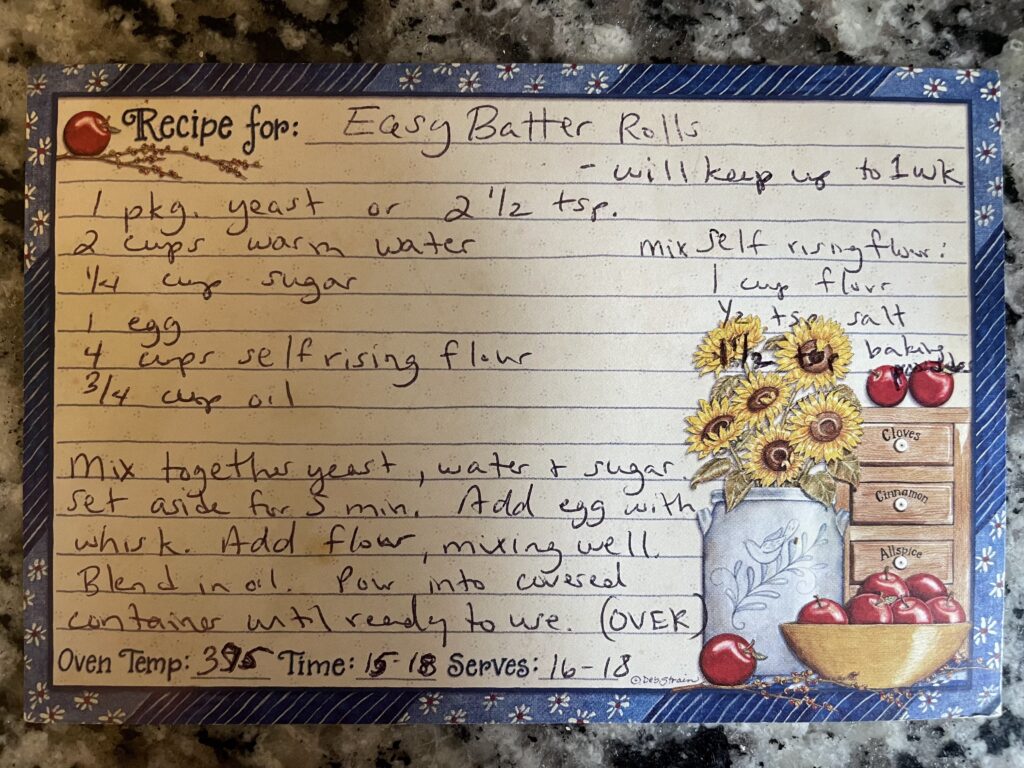 Recipe for: Easy Batter Rolls
- will keep up to 1 wk
1 pkg. yeast or 2 1/2 tsp.
2 cups warm water
1/4 cup sugar
1 egg
4 cups self rising flour
3/4 cup oil
Mix self rising flour:
1 cup flour
1/2 tsp salt
1 1/2 tsp baking powder
Mix together yeast, water + sugar.
set aside for 5 min. Add egg with
whisk. Add flour, mixing well.
Blend in oil. Pour into covered
container until ready to use. (OVER)
Oven Temp: 395 Time: 15-18 Serves: 16-18
Cloves
Cinnamon
Allspice
©Deb Strain